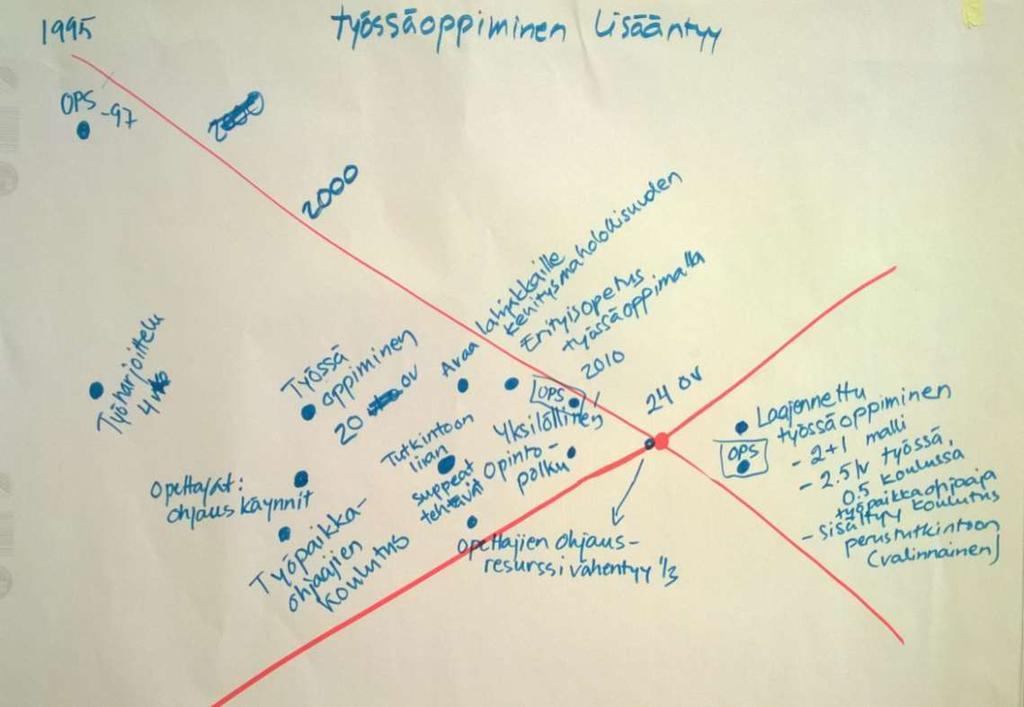 1995
Työssäoppiminen lisääntyy
OPS -97
2000
Työharjoittelu
4
Työssä
oppiminen
20 ov
Avaa lahjakkaille
kehitysmahdollisuuden
Erityisopetus
työssäoppimalla
OPS 2010
24 ov
Tutkintoon
liian
suppeat
tehtävät
Yksilöllinen
opinto-
polku
Opettajat:
ohjaus käynnit
Työpaikka-
ohjaajien
koulutus
Opettajien ohjaus-
resurssi vähentyy 1/3
Laajennettu
työssäoppiminen
OPS
- 2+1 malli
- 2.5 lv työssä,
0.5 koulussa
työpaikkaohjaaja
- sisältyy koulutus
perustutkintoon
(valinnainen)